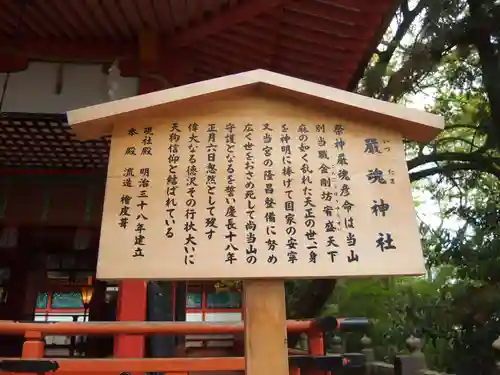 嚴魂神社
いつ たま
祭神嚴魂彦命は当山
別当職金剛坊宥盛天下
麻の如く乱れた天正の世一身
を神明に捧げて国家の安寧
又当宮の隆昌整備に努め
広く世をおさめ死して尚当山の
守護となるを誓い慶長十八年
正月六日忽然として残す
偉大なる徳沢その行状大いに
天狗信仰と結ばれている
現社殿 明治三十八年建立
本殿 流造 檜皮葺